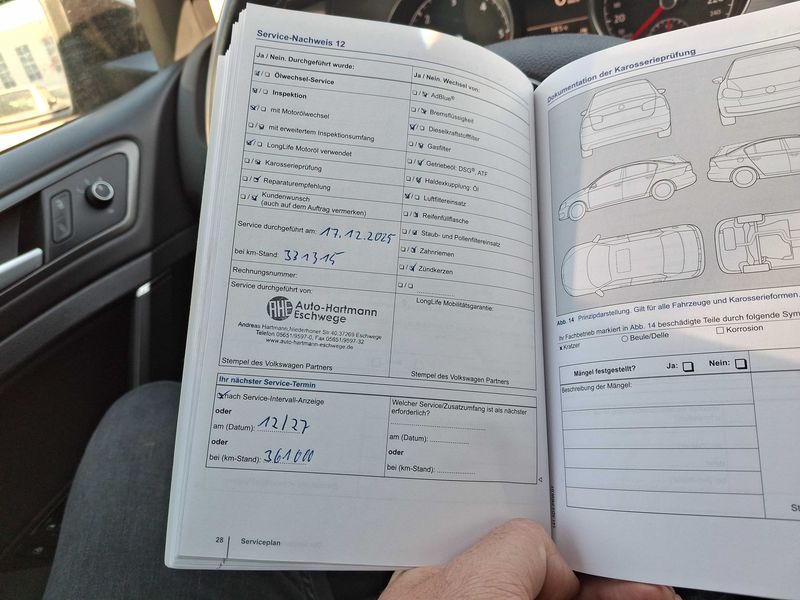 Service-Nachweis 12
Ja / Nein. Durchgeführt wurde:
Ölwechsel-Service
Inspektion
mit Motorölwechsel
mit erweitertem Inspektionsumfang
LongLife Motoröl verwendet
Karosserieprüfung
Reparaturempfehlung
Kundenwunsch
(auch auf dem Auftrag vermerken)
Service durchgeführt am: 17.12.2025
bei km-Stand: 331315
Rechnungsnummer:
Service durchgeführt von:
AHE Auto-Hartmann
Eschwege
Andreas Hartmann, Niederhoner Str. 40, 37269 Eschwege
Telefon 05651/9597-0, Fax 05651/9597-32
www.auto-hartmann-eschwege.de
Stempel des Volkswagen Partners
Ja / Nein. Wechsel von:
AdBlue®
Bremsflüssigkeit
Dieselkraftstofffilter
Gasfilter
Getriebeöl: DSG® ATF
Haldexkupplung: Öl
Luftfiltereinsatz
Reifenfüllflasche
Staub- und Pollenfiltereinsatz
Zahnriemen
Zündkerzen
LongLife Mobilitätsgarantie:
Stempel des Volkswagen Partners
Ihr nächster Service-Termin
nach Service-Intervall-Anzeige
oder
am (Datum): 12/27
oder
bei (km-Stand): 361000
Welcher Service/Zusatzumfang ist als nächster
erforderlich?
am (Datum):
oder
bei (km-Stand):
28 Serviceplan
Dokumentation der Karosserieprüfung
Abb. 14 Prinzipdarstellung. Gilt für alle Fahrzeuge und Karosserieformen.
Ihr Fachbetrieb markiert in Abb. 14 beschädigte Teile durch folgende Sym
x Kratzer
Beule/Delle
Korrosion
Mängel festgestellt? Ja: Nein:
Beschreibung der Mängel:
St